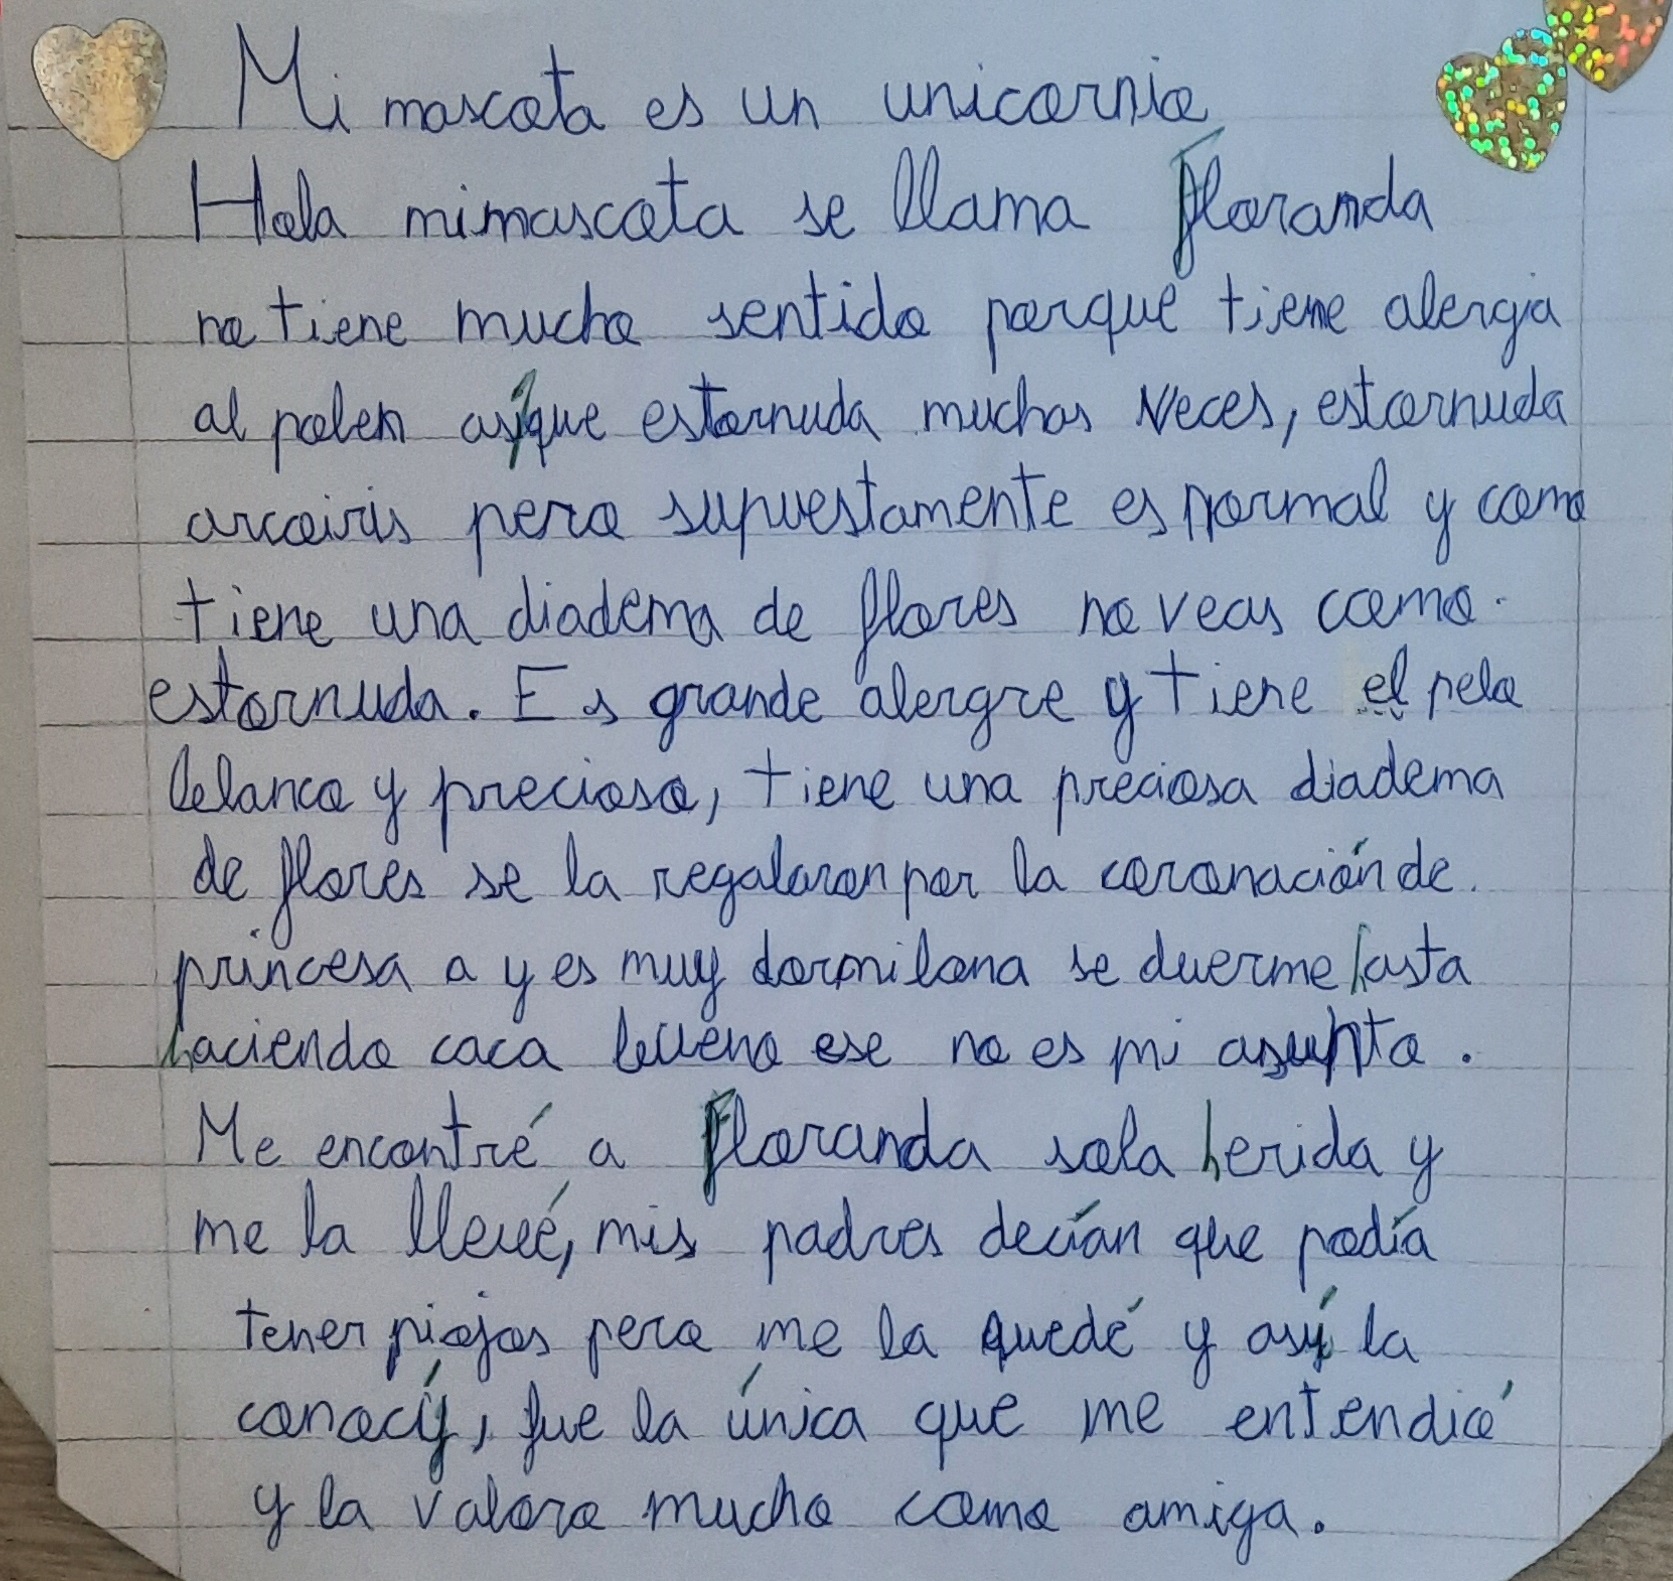 Mi mascota es un unicornio
Hola mimascota se llama Floranda
no tiene mucho sentido porque tiene alergia
al polen asíque estornuda muchas veces, estornuda
arcoiris pero supuestamente es normal y como
tiene una diadema de flores no veas como
estornuda. Es grande alergre y tiene el pelo
blanco y precioso, tiene una preciosa diadema
de flores se la regalaron por la coronación de
princesa a y es muy dormilona se duerme hasta
haciendo caca bueno ese no es mi asunto.
Me encontré a Floranda sola herida y
me la llevé, mis padres decían que podía
tener piojos pero me la quedé y así la
conocí, fue la única que me entendió
y la valoro mucho como amiga.